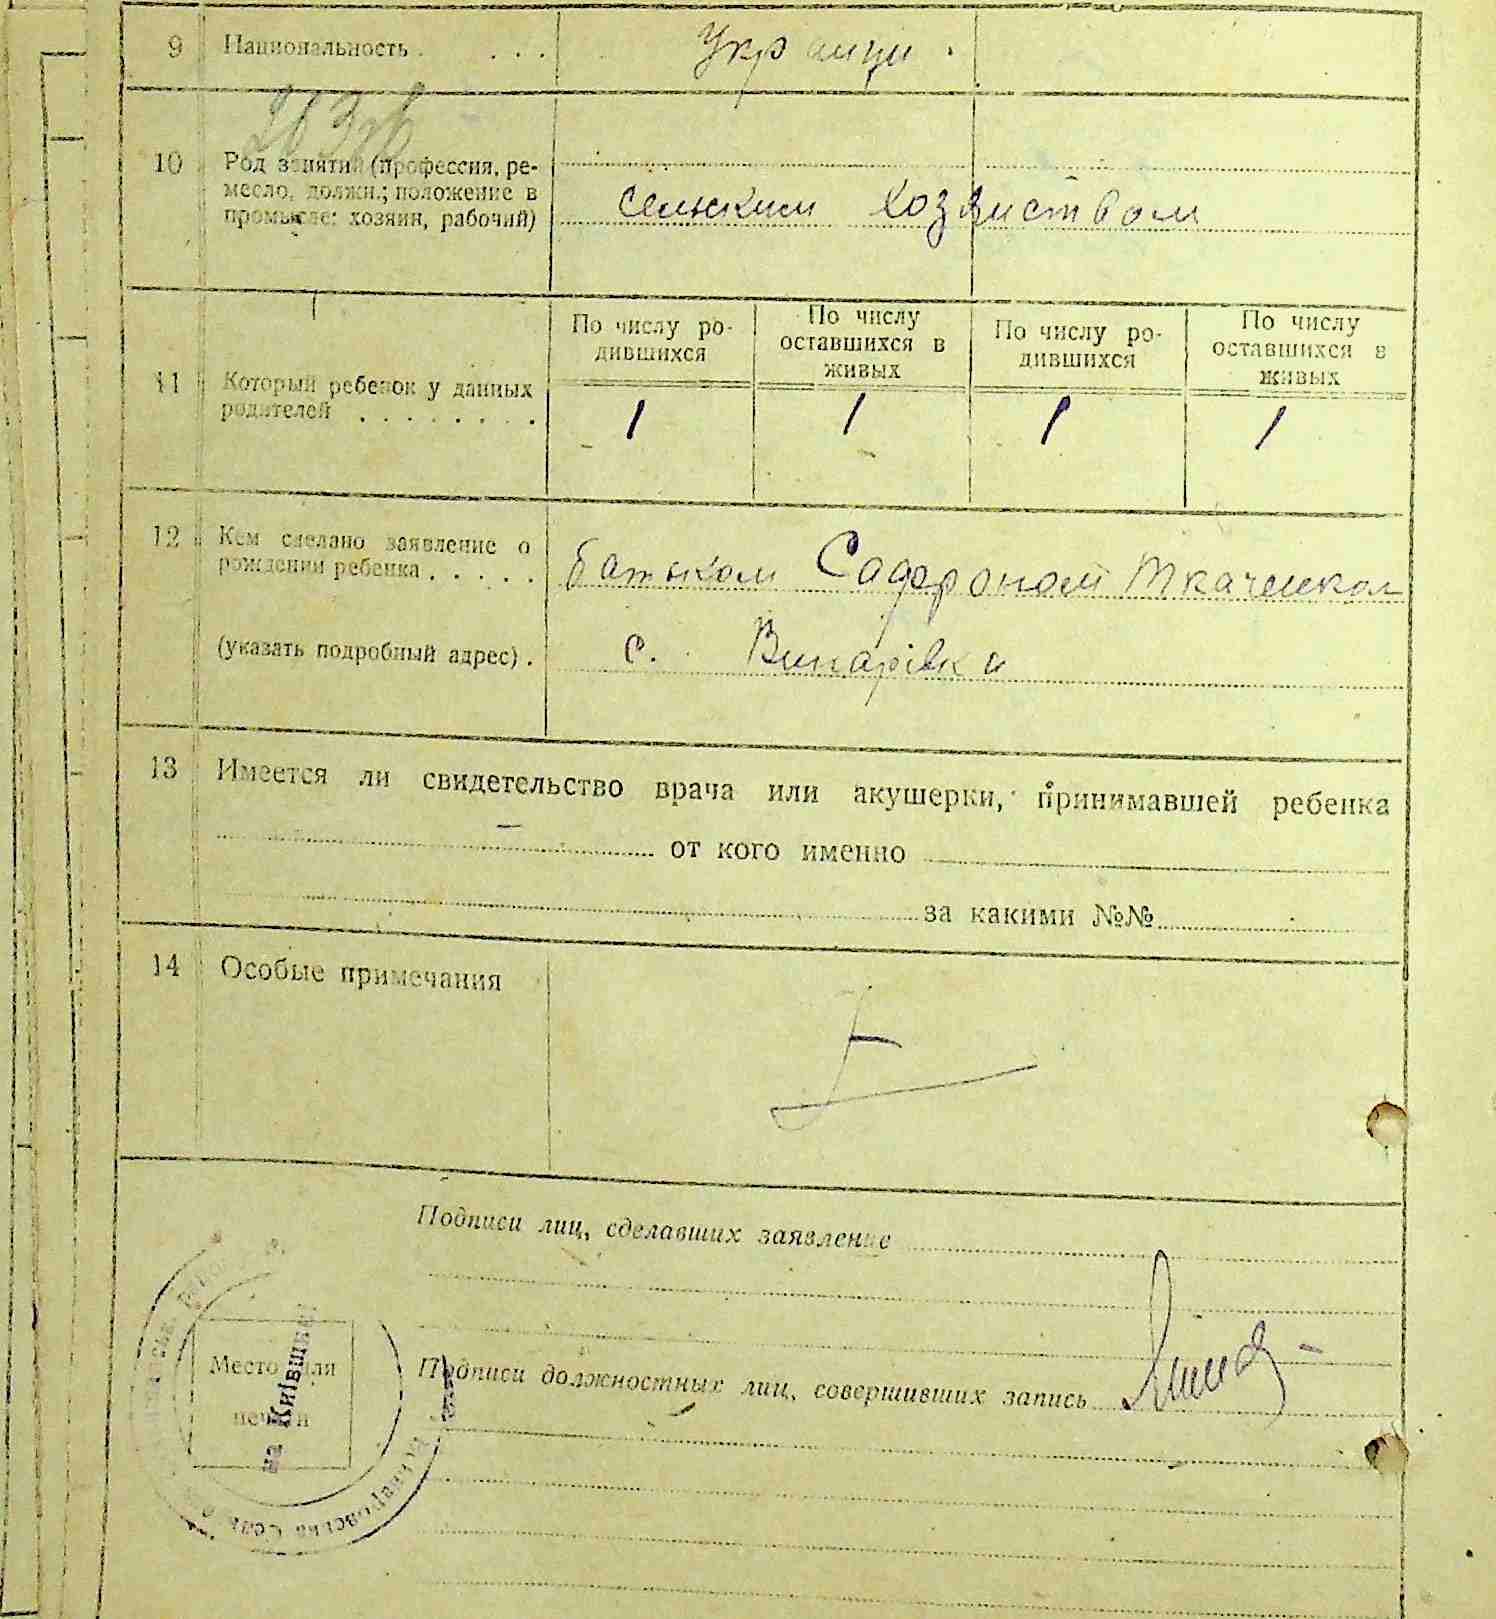 9 Национальность . . . . Украинци
10 Род занятий (профессия, ре-
месло, должн.; положение в
промысле: хозяин, рабочий)
сельским хозяиством
11 Который ребенок у данных
родителей . . . . . . . .
По числу ро-
дившихся
По числу
оставшихся в
живых
По числу ро-
дившихся
По числу
оставшихся в
живых
1 1 1 1
12 Кем сделано заявление о
рождении ребенка . . . . .
батьком Ткаченком
(указать подробный адрес) .
с. Винарівка
13 Имеется ли свидетельство врача или акушерки, принимавшей ребенка
— от кого именно
за какими №№
14 Особые примечания
Подписи лиц, сделавших заявление
Место для
печати
на Київщині
Подписи должностных лиц, совершивших запись